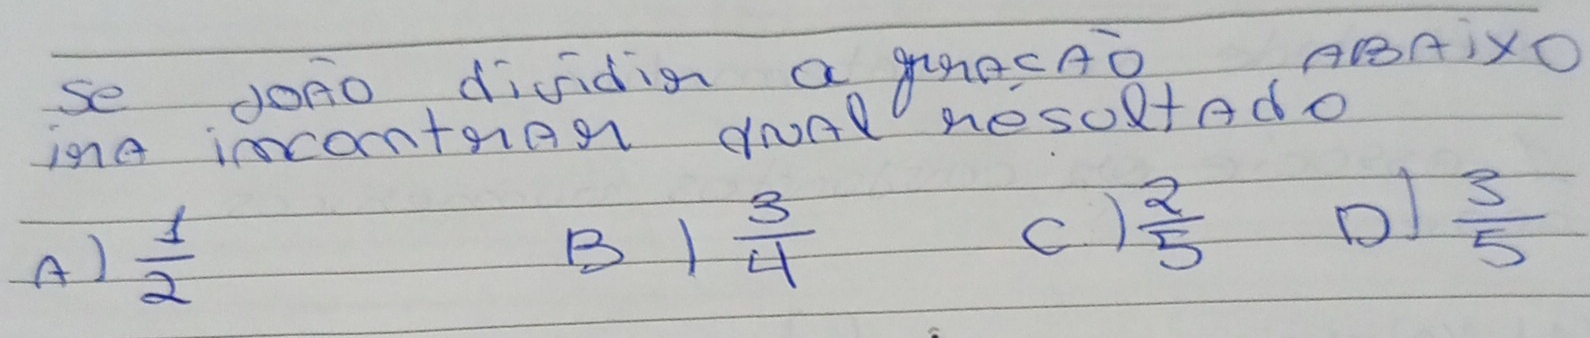 se JOÃO dividir a fraCAÕ ABAixO
irA incontrAr qual resultAdo
A) 1/2 B) 3/4 C) 2/5 D) 3/5